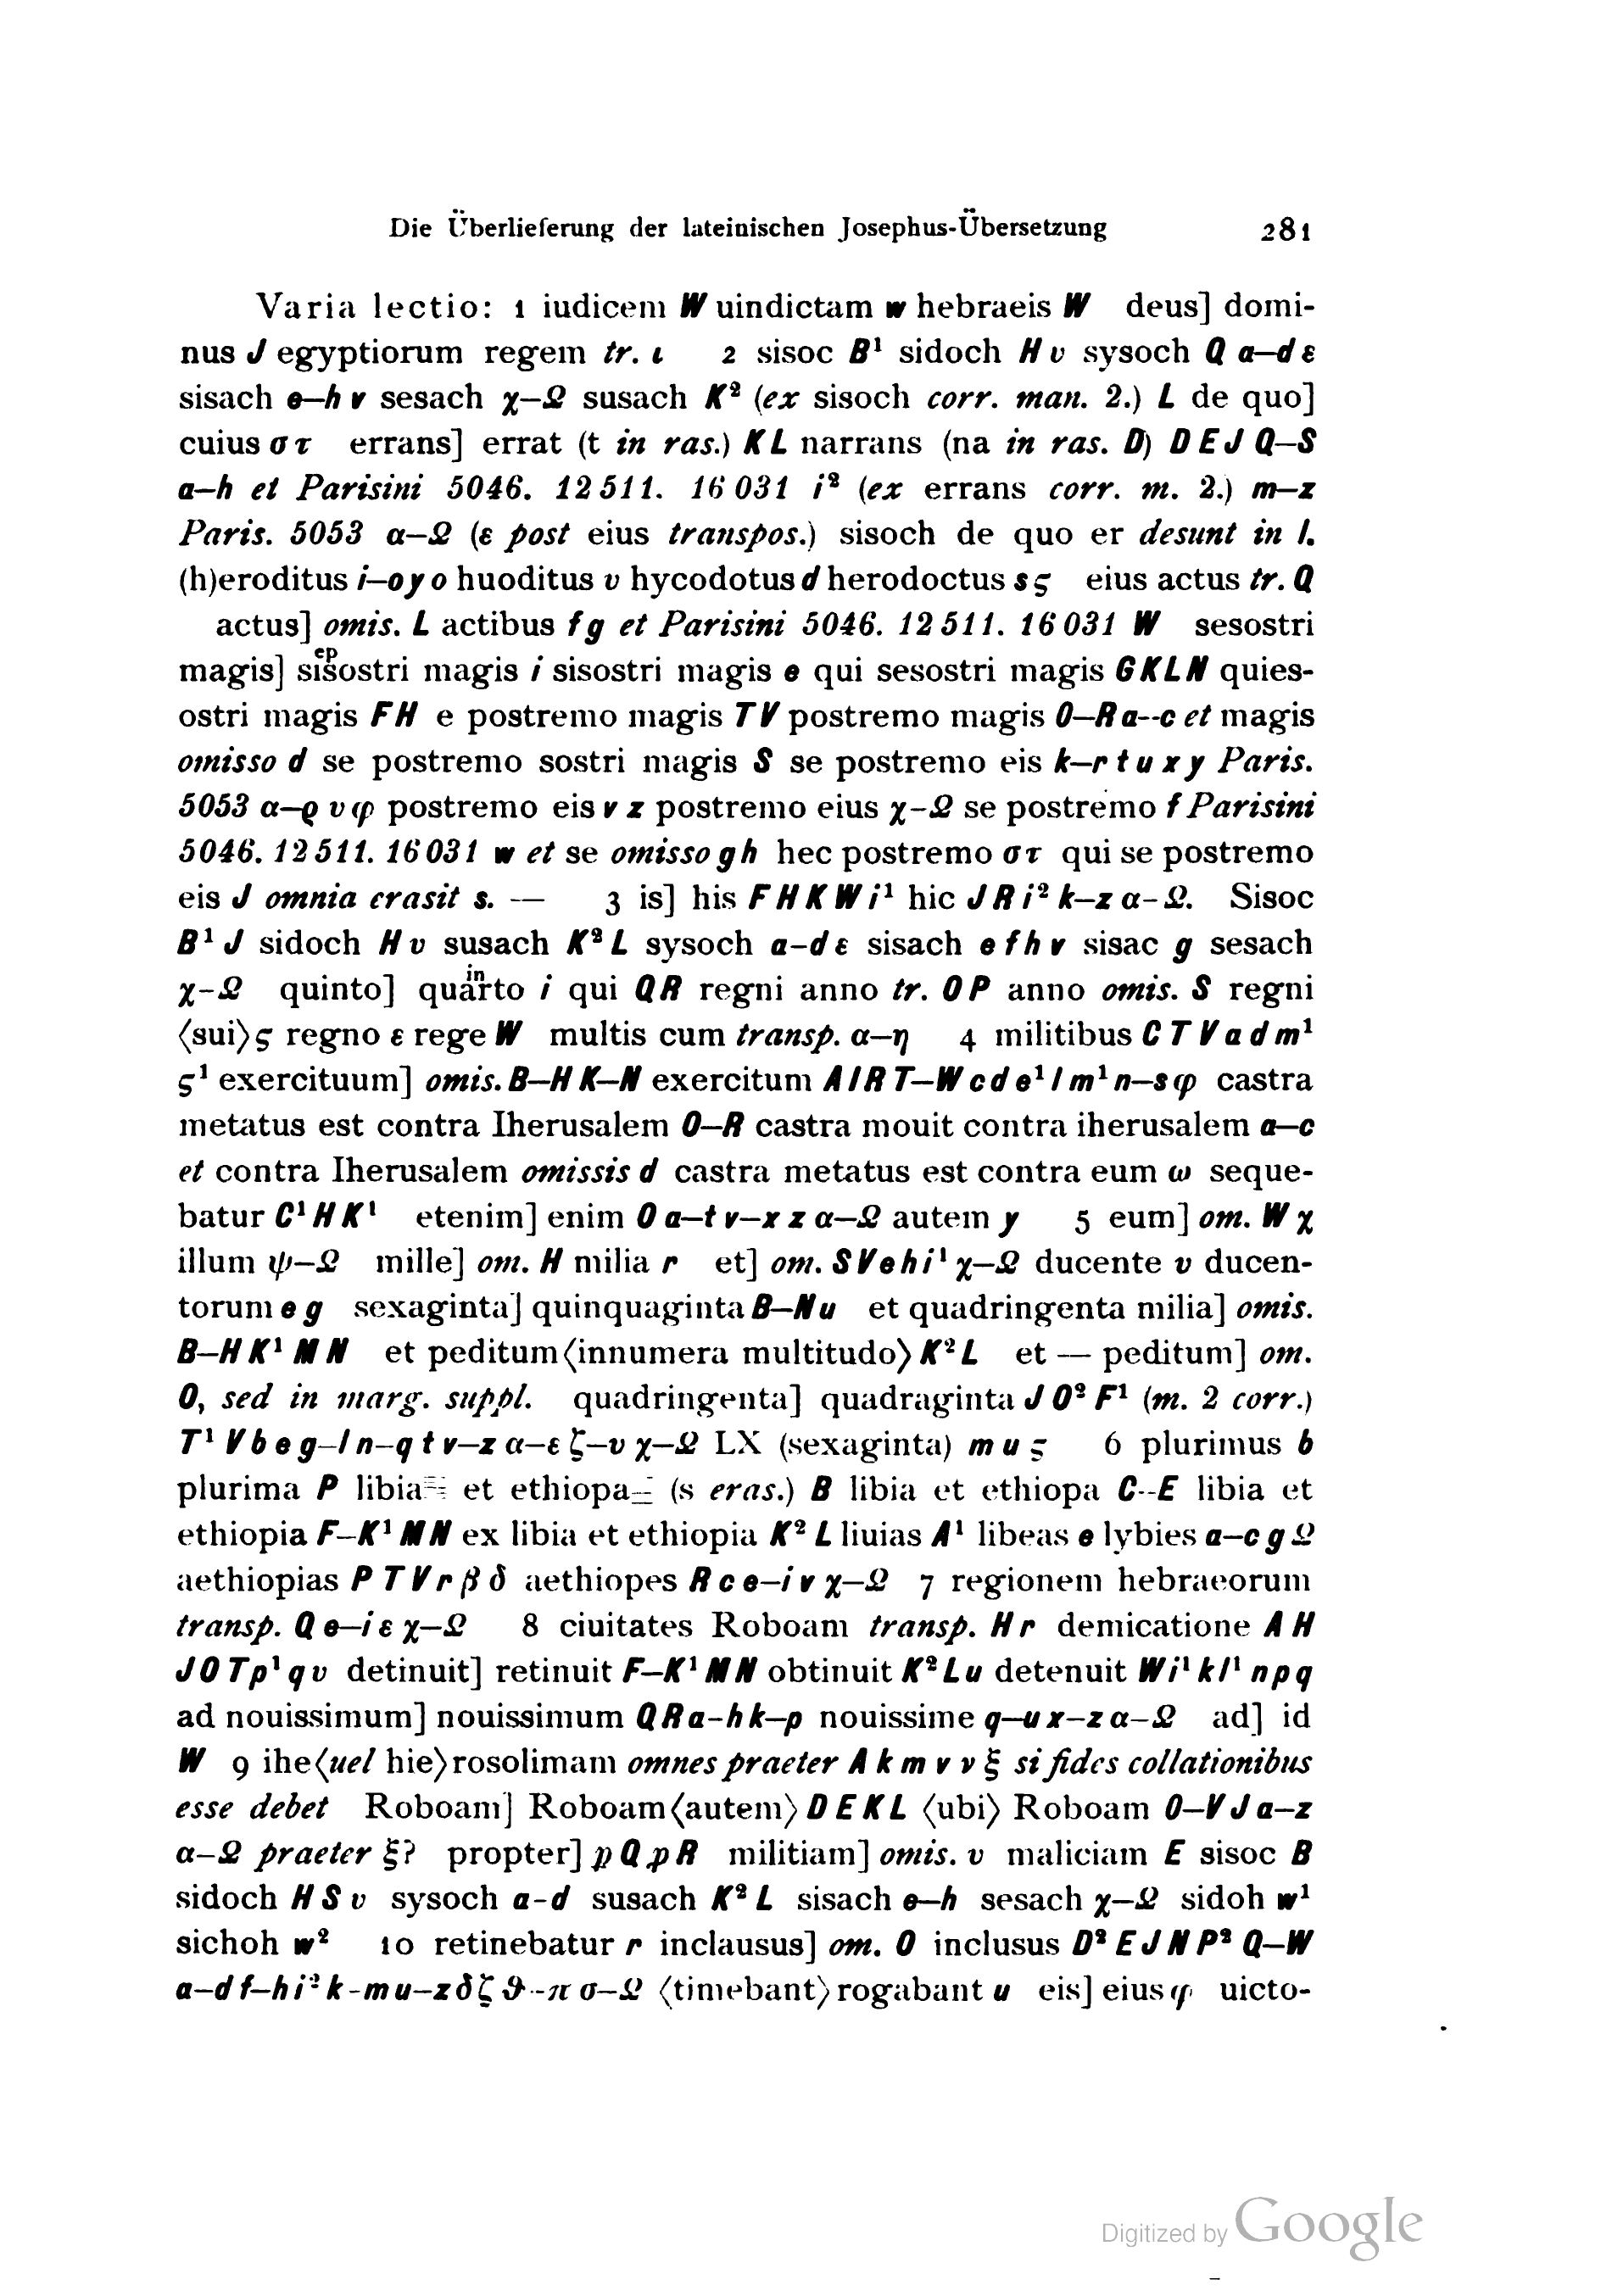 Die Überlieferung der lateinischen Josephus-Übersetzung 281
Varia lectio: 1 iudicem W uindictam w hebraeis W deus] domi-
nus J egyptiorum regem tr. ι 2 sisoc B¹ sidoch H υ sysoch Q a–d ε
sisach e–h v sesach χ–Ω susach K² (ex sisoch corr. man. 2.) L de quo]
cuius σ τ errans] errat (t in ras.) K L narrans (na in ras. D) D E J Q–S
a–h et Parisini 5046. 12511. 16031 i² (ex errans corr. m. 2.) m–z
Paris. 5053 α–Ω (ε post eius transpos.) sisoch de quo er desunt in l.
(h)eroditus i–o y o huoditus υ hycodotus d herodoctus s ς eius actus tr. Q
actus] omis. L actibus f g et Parisini 5046. 12511. 16031 W sesostri
magis] sisostri magis i sisostri magis e qui sesostri magis G K L N quies-
ostri magis F H e postremo magis T V postremo magis O–R a--c et magis
omisso d se postremo sostri magis S se postremo eis k–r t u x y Paris.
5053 α–ϱ υ φ postremo eis v z postremo eius χ–Ω se postremo f Parisini
5046. 12511. 16031 w et se omisso g h hec postremo σ τ qui se postremo
eis J omnia crasit s. — 3 is] his F H K W i¹ hic J R i² k–z α–Ω. Sisoc
B¹ J sidoch H υ susach K² L sysoch a–d ε sisach e f h v sisac g sesach
χ–Ω quinto] quarto i qui Q R regni anno tr. O P anno omis. S regni
⟨sui⟩ ς regno ε rege W multis cum transp. α–η 4 militibus C T V a d m¹
ς¹ exercituum] omis. B–H K–N exercitum A I R T–W c d e¹ l m¹ n–s φ castra
metatus est contra Iherusalem O–R castra mouit contra iherusalem a–c
et contra Iherusalem omissis d castra metatus est contra eum ω seque-
batur C¹ H K¹ etenim] enim O a–t v–x z α–Ω autem y 5 eum] om. W χ
illum ψ–Ω mille] om. H milia r et] om. S V e h i¹ χ–Ω ducente υ ducen-
torum e g sexaginta] quinquaginta B–N u et quadringenta milia] omis.
B–H K¹ M N et peditum ⟨innumera multitudo⟩ K² L et — peditum] om.
O, sed in marg. suppl. quadringenta] quadraginta J O² F¹ (m. 2 corr.)
T¹ V b e g–l n–q t v–z α–ε ζ–υ χ–Ω LX (sexaginta) m u ς 6 plurimus b
plurima P libia et ethiopa (s eras.) B libia et ethiopa C--E libia et
ethiopia F–K¹ M N ex libia et ethiopia K² L liuias A¹ libeas e lybies a–c g Ω
aethiopias P T V r β δ aethiopes R c e–i v χ–Ω 7 regionem hebraeorum
transp. Q e–i ε χ–Ω 8 ciuitates Roboam transp. H r demicatione A H
J O T p¹ q υ detinuit] retinuit F–K¹ M N obtinuit K² L u detenuit W i¹ k l¹ n p q
ad nouissimum] nouissimum Q R a–h k–p nouissime q–u x–z α–Ω ad] id
W 9 ihe⟨uel hie⟩rosolimam omnes praeter A k m v ν ξ si fides collationibus
esse debet Roboam] Roboam⟨autem⟩ D E K L ⟨ubi⟩ Roboam O–V J a–z
α–Ω praeter ξ? propter] p Q p R militiam] omis. υ maliciam E sisoc B
sidoch H S υ sysoch a–d susach K² L sisach e–h sesach χ–Ω sidoh w¹
sichoh w² 10 retinebatur r inclausus] om. O inclusus D² E J N P² Q–W
a–d f–h i² k–m u–z δ ζ ϑ--π σ–Ω ⟨timebant⟩ rogabant u eis] eius φ uicto-
Digitized by Google